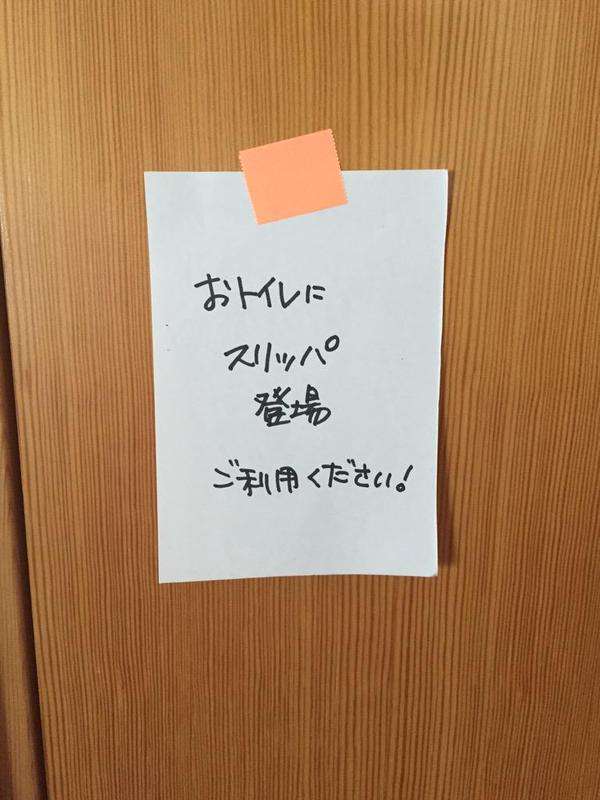 おトイレに
スリッパ
登場
ご利用ください!